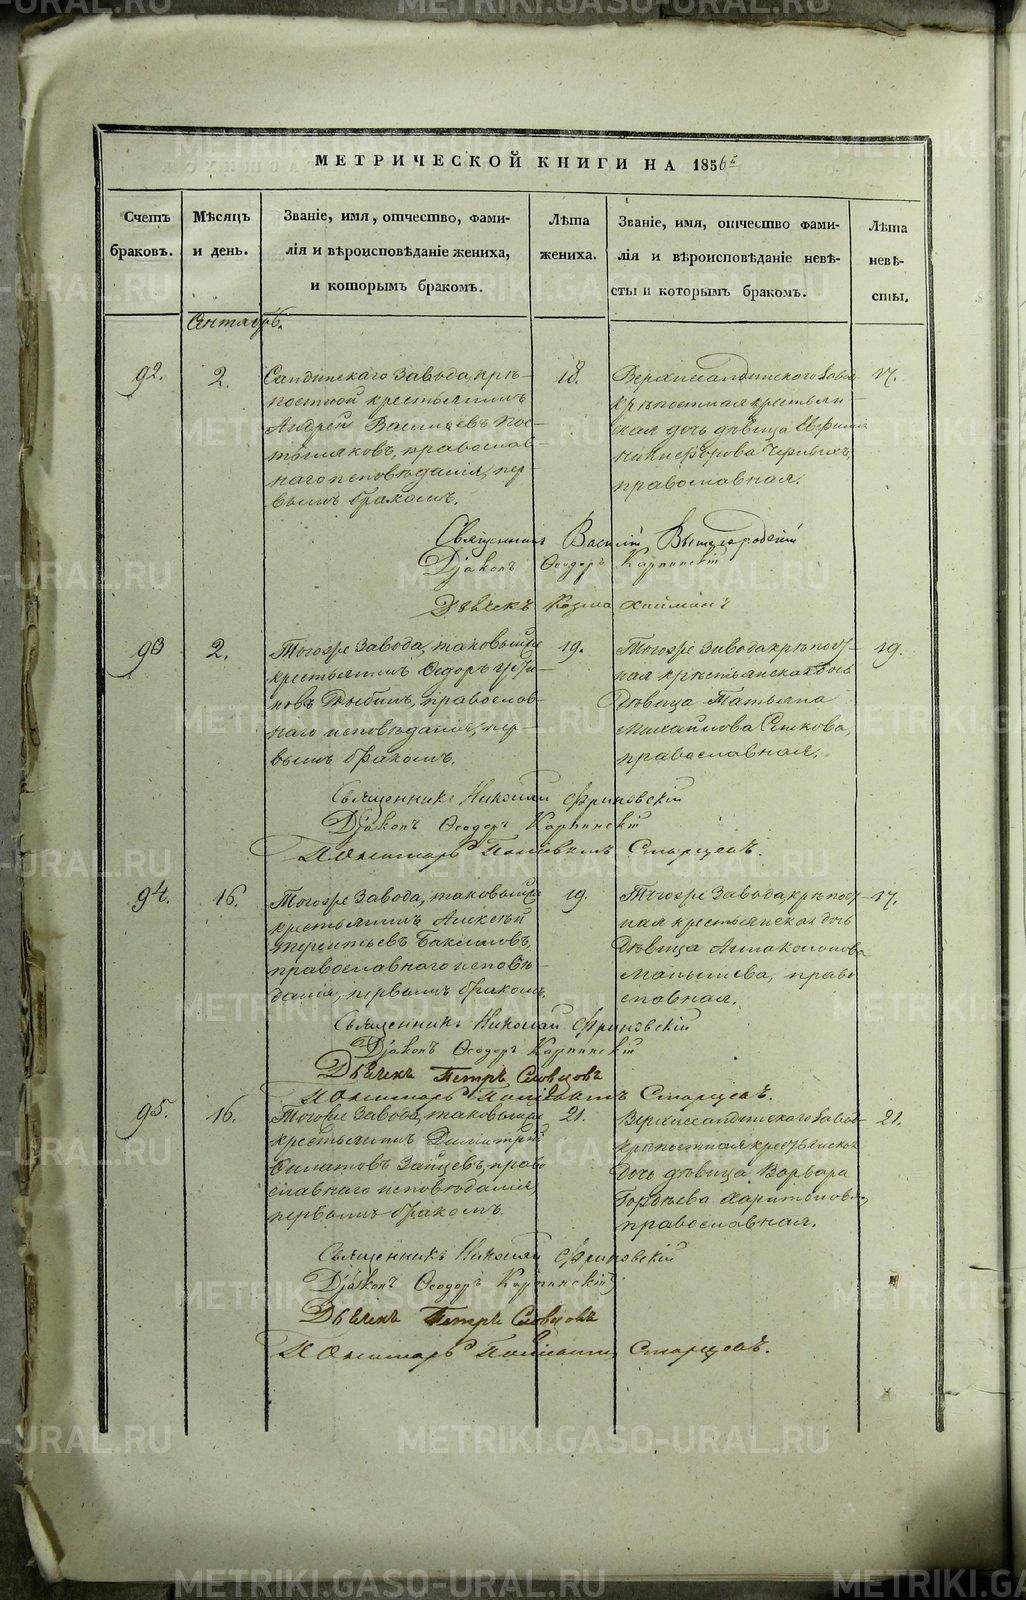 МЕТРИЧЕСКОЙ КНИГИ НА 1856й
Счетъ браковъ.
Мѣсяцъ и день.
Званіе, имя, отчество, фами-
лія и вѣроисповѣданіе жениха,
и которымъ бракомъ.
Лѣта жениха.
Званіе, имя, отчество фами-
лія и вѣроисповѣданіе невѣ-
сты и которымъ бракомъ.
Лѣта невѣ-
сты.
Сентябрь.
92.
2.
завода, крѣ-
постной крестьянинъ
Андрей Васильевъ
православ
наго исповѣданія, пер
вымъ бракомъ.
18.
завод
крѣпостная крестьян
ская дочь дѣвица
Никифорова Черныхъ
православная.
17.
Священникъ Василій
Діаконъ Ѳеодоръ Карпинскій
Дьячекъ Козма
93
2.
Тогоже завода, таковый же
крестьянинъ Ѳедоръ
православ-
наго исповѣданія, пер-
вымъ бракомъ.
19.
Тогоже завода крѣпост-
ная крестьянская дочь
Дѣвица Татьяна
Михайлова
православная.
19.
Священникъ Николай Фриновскій
Діаконъ Ѳеодоръ Карпинскій
Пономарь Старцевъ.
94.
16.
Тогоже завода, таковый же
крестьянинъ Алексѣй
Терентьевъ
православнаго исповѣ
данія, первымъ бракомъ.
19.
Тогоже завода, крѣпост-
ная крестьянская дочь
Дѣвица Анна
Малышева, право
славная.
17.
Священникъ Николай Фриновскій
Діаконъ Ѳеодоръ Карпинскій
Дьячекъ Петръ Словцовъ
Пономарь Старцевъ.
95.
16.
Тогоже завода, таковый же
крестьянинъ Димитрій
Филатовъ Зайцевъ, право
славнаго исповѣданія,
первымъ бракомъ.
21.
завод
крѣпостная крестьянская
дочь дѣвица Варвара
Гордѣева Харитонова,
православная.
21.
Священникъ Николай Фриновскій
Діаконъ Ѳеодоръ Карпинскій
Дьячекъ Петръ Словцовъ
Пономарь Старцевъ.
METRIKI.GASO-URAL.RU